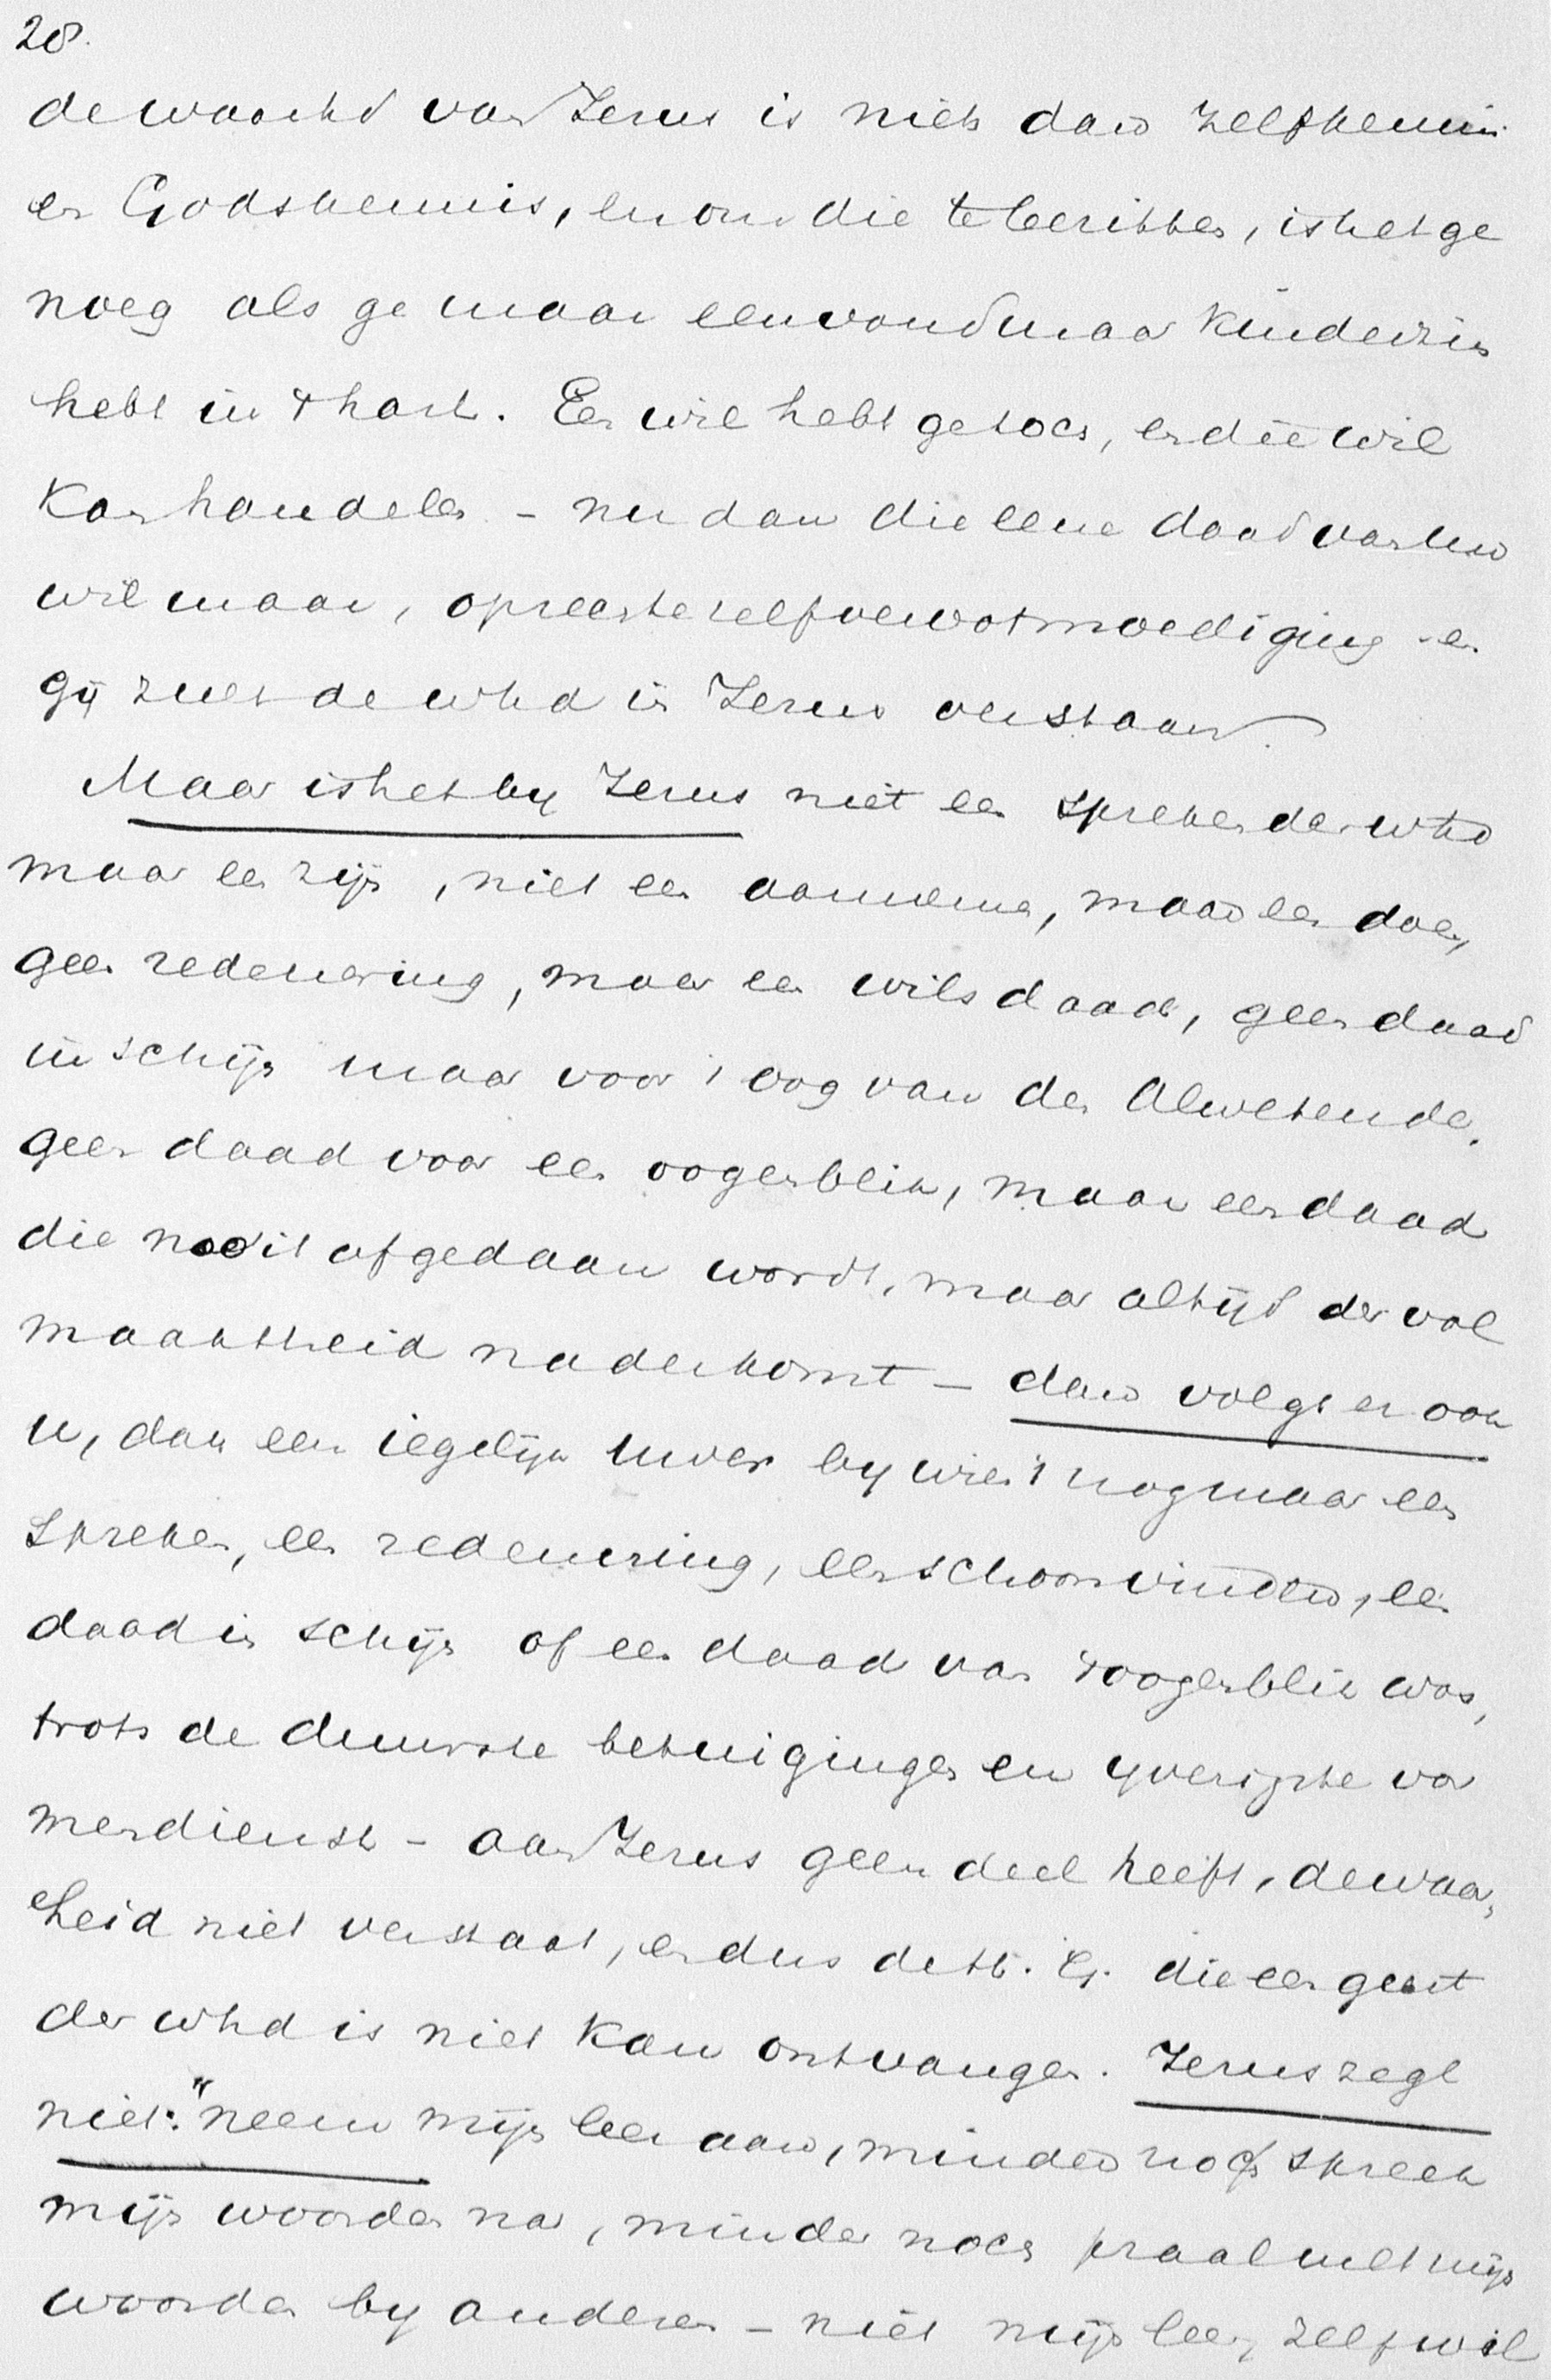 28.
de waarhd van Jezus is niets dan zelfkennis
en Godskennis, en om die te bezitten, is het ge
noeg als ge maar eenvoud maar kinderzin
hebt in 't hart. Een wil hebt ge toch, en die wil
kan handelen - nu dan die eene daad van uw
wil maar, oprechte zelfverootmoediging - en
gij zult de whd in Jezus verstaan.
Maar is het by Jezus niet een spreken der whd
maar een zijn, niet een aannemen, maar een doen,
geen redenering, maar een wilsdaad, geen daad
in schijn maar voor 't oog van den Alwetende,
geen daad voor een oogenblik, maar een daad
die nooit afgedaan wordt, maar altijd der vol
maaktheid naderkomt - dan volgt er ook
u, dan een iegelijk uwer by wie 't nog maar een
spreken, een redenering, een schoonvinden, een
daad in schijn of een daad van 't oogenblik was,
trots de duurste betuigingen en yverigste va
mendienst - aan Jezus geen deel heeft, de waar,
heid niet verstaat, en dus de H. G. die een geest
der whd is niet kan ontvangen. Jezus zegt
niet: "neem mijn leer aan, minder noch spreek
mijn woorden na, minder noch praal met mijn
woorden by anderen - niet mijn leer, zelf wil